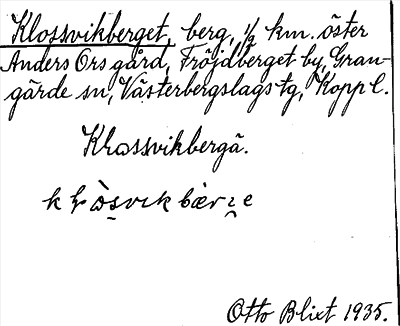 Klossvikberget, berg, ½ km. öster
Anders Ors gård, Fröjdberget by, Gran-
gärde sn, Västerbergslags tg, Kopp l.
Klossvikbergä.
Otto Blixt 1935.